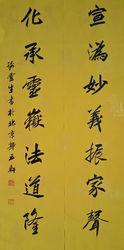 宣溈妙義振家聲
化承靈嶽法道隆
生書於北京